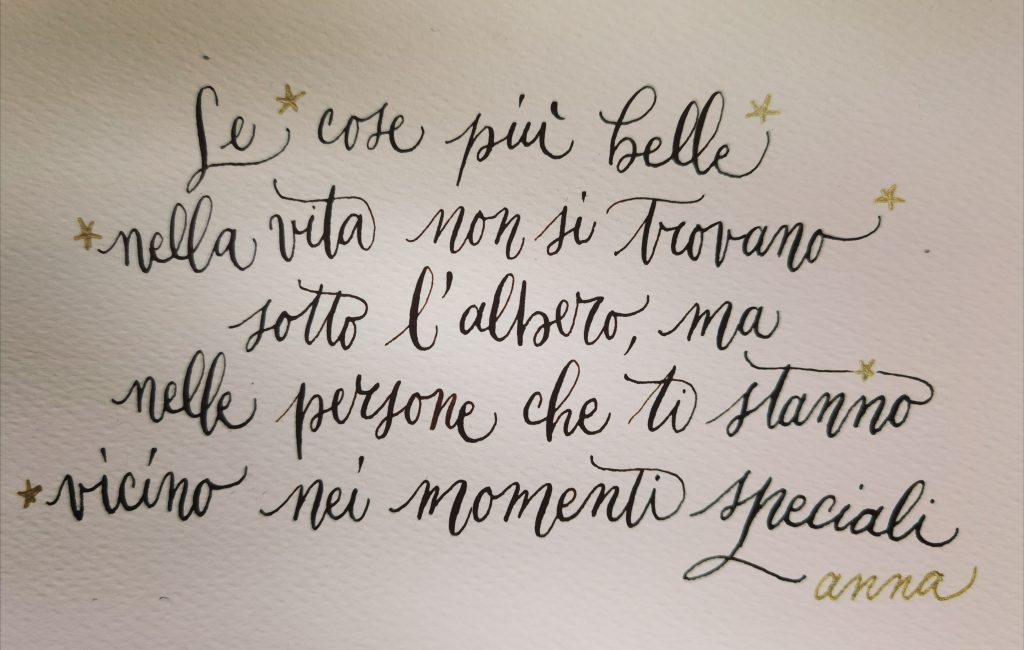 Le cose più belle
nella vita non si trovano
sotto l'albero, ma
nelle persone che ti stanno
vicino nei momenti speciali
anna